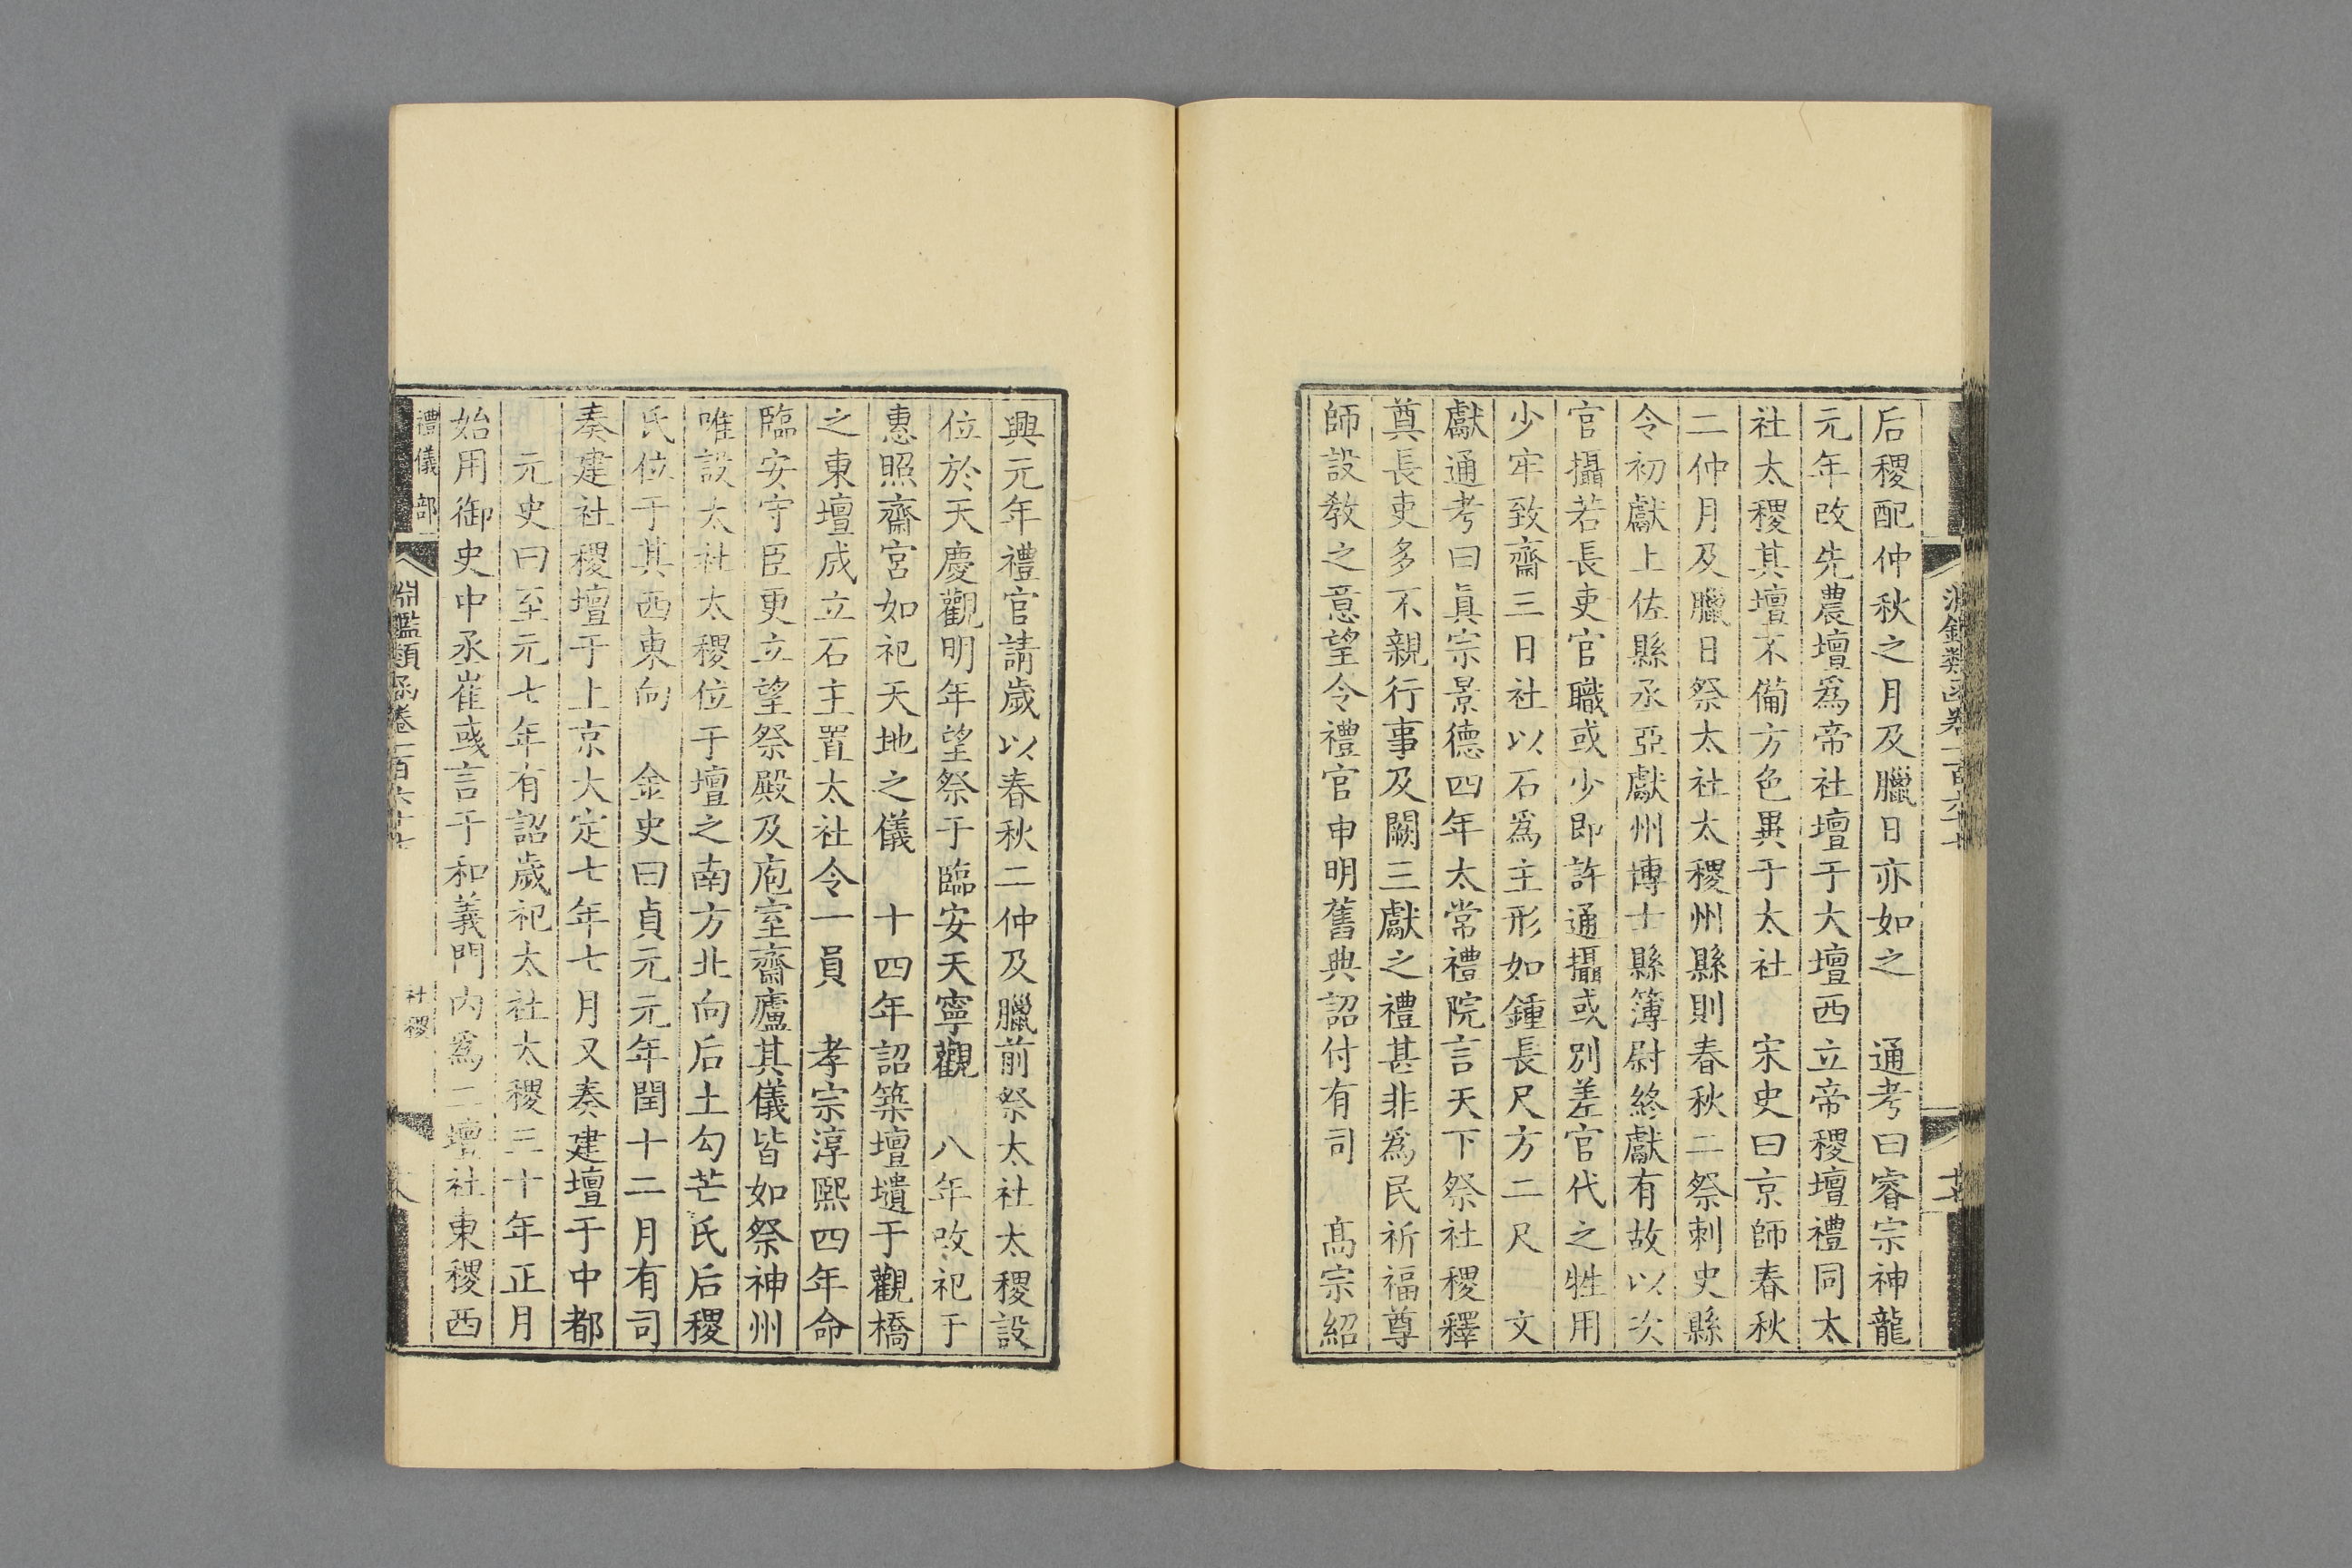 后稷配仲秋之月及臘日亦如之　通考曰睿宗神龍
元年改先農壇爲帝社壇于大壇西立帝稷壇禮同太
社太稷其壇不備方色異于太社　宋史曰京師春秋
二仲月及臘日祭太社太稷州縣則春秋二祭刺史縣
令初獻上佐縣丞亞獻州博士縣簿尉終獻有故以次
官攝若長吏官職或少即許通攝或別差官代之牲用
少牢致齋三日社以石爲主形如鍾長尺方二尺　文
獻通考曰眞宗景德四年太常禮院言天下祭社稷釋
奠長吏多不親行事及闕三獻之禮甚非爲民祈福尊
師設教之意望令禮官申明舊典詔付有司　髙宗紹
興元年禮官請歲以春秋二仲及臘前祭太社太稷設
位於天慶觀明年望祭于臨安天寧觀　八年改祀于
惠照齋宮如祀天地之儀　十四年詔築壇壝于觀橋
之東壇成立石主置太社令一員　孝宗淳熙四年命
臨安守臣更立望祭殿及庖室齋廬其儀皆如祭神州
唯設太社太稷位于壇之南方北向后土勾芒氏后稷
氏位于其西東向　金史曰貞元元年閏十二月有司
奏建社稷壇于上京大定七年七月又奏建壇于中都
元史曰至元七年有詔歲祀太社太稷三十年正月
始用御史中丞崔彧言于和義門内爲二壇社東稷西
禮儀部
淵鑑類函卷一百六十七
社稷